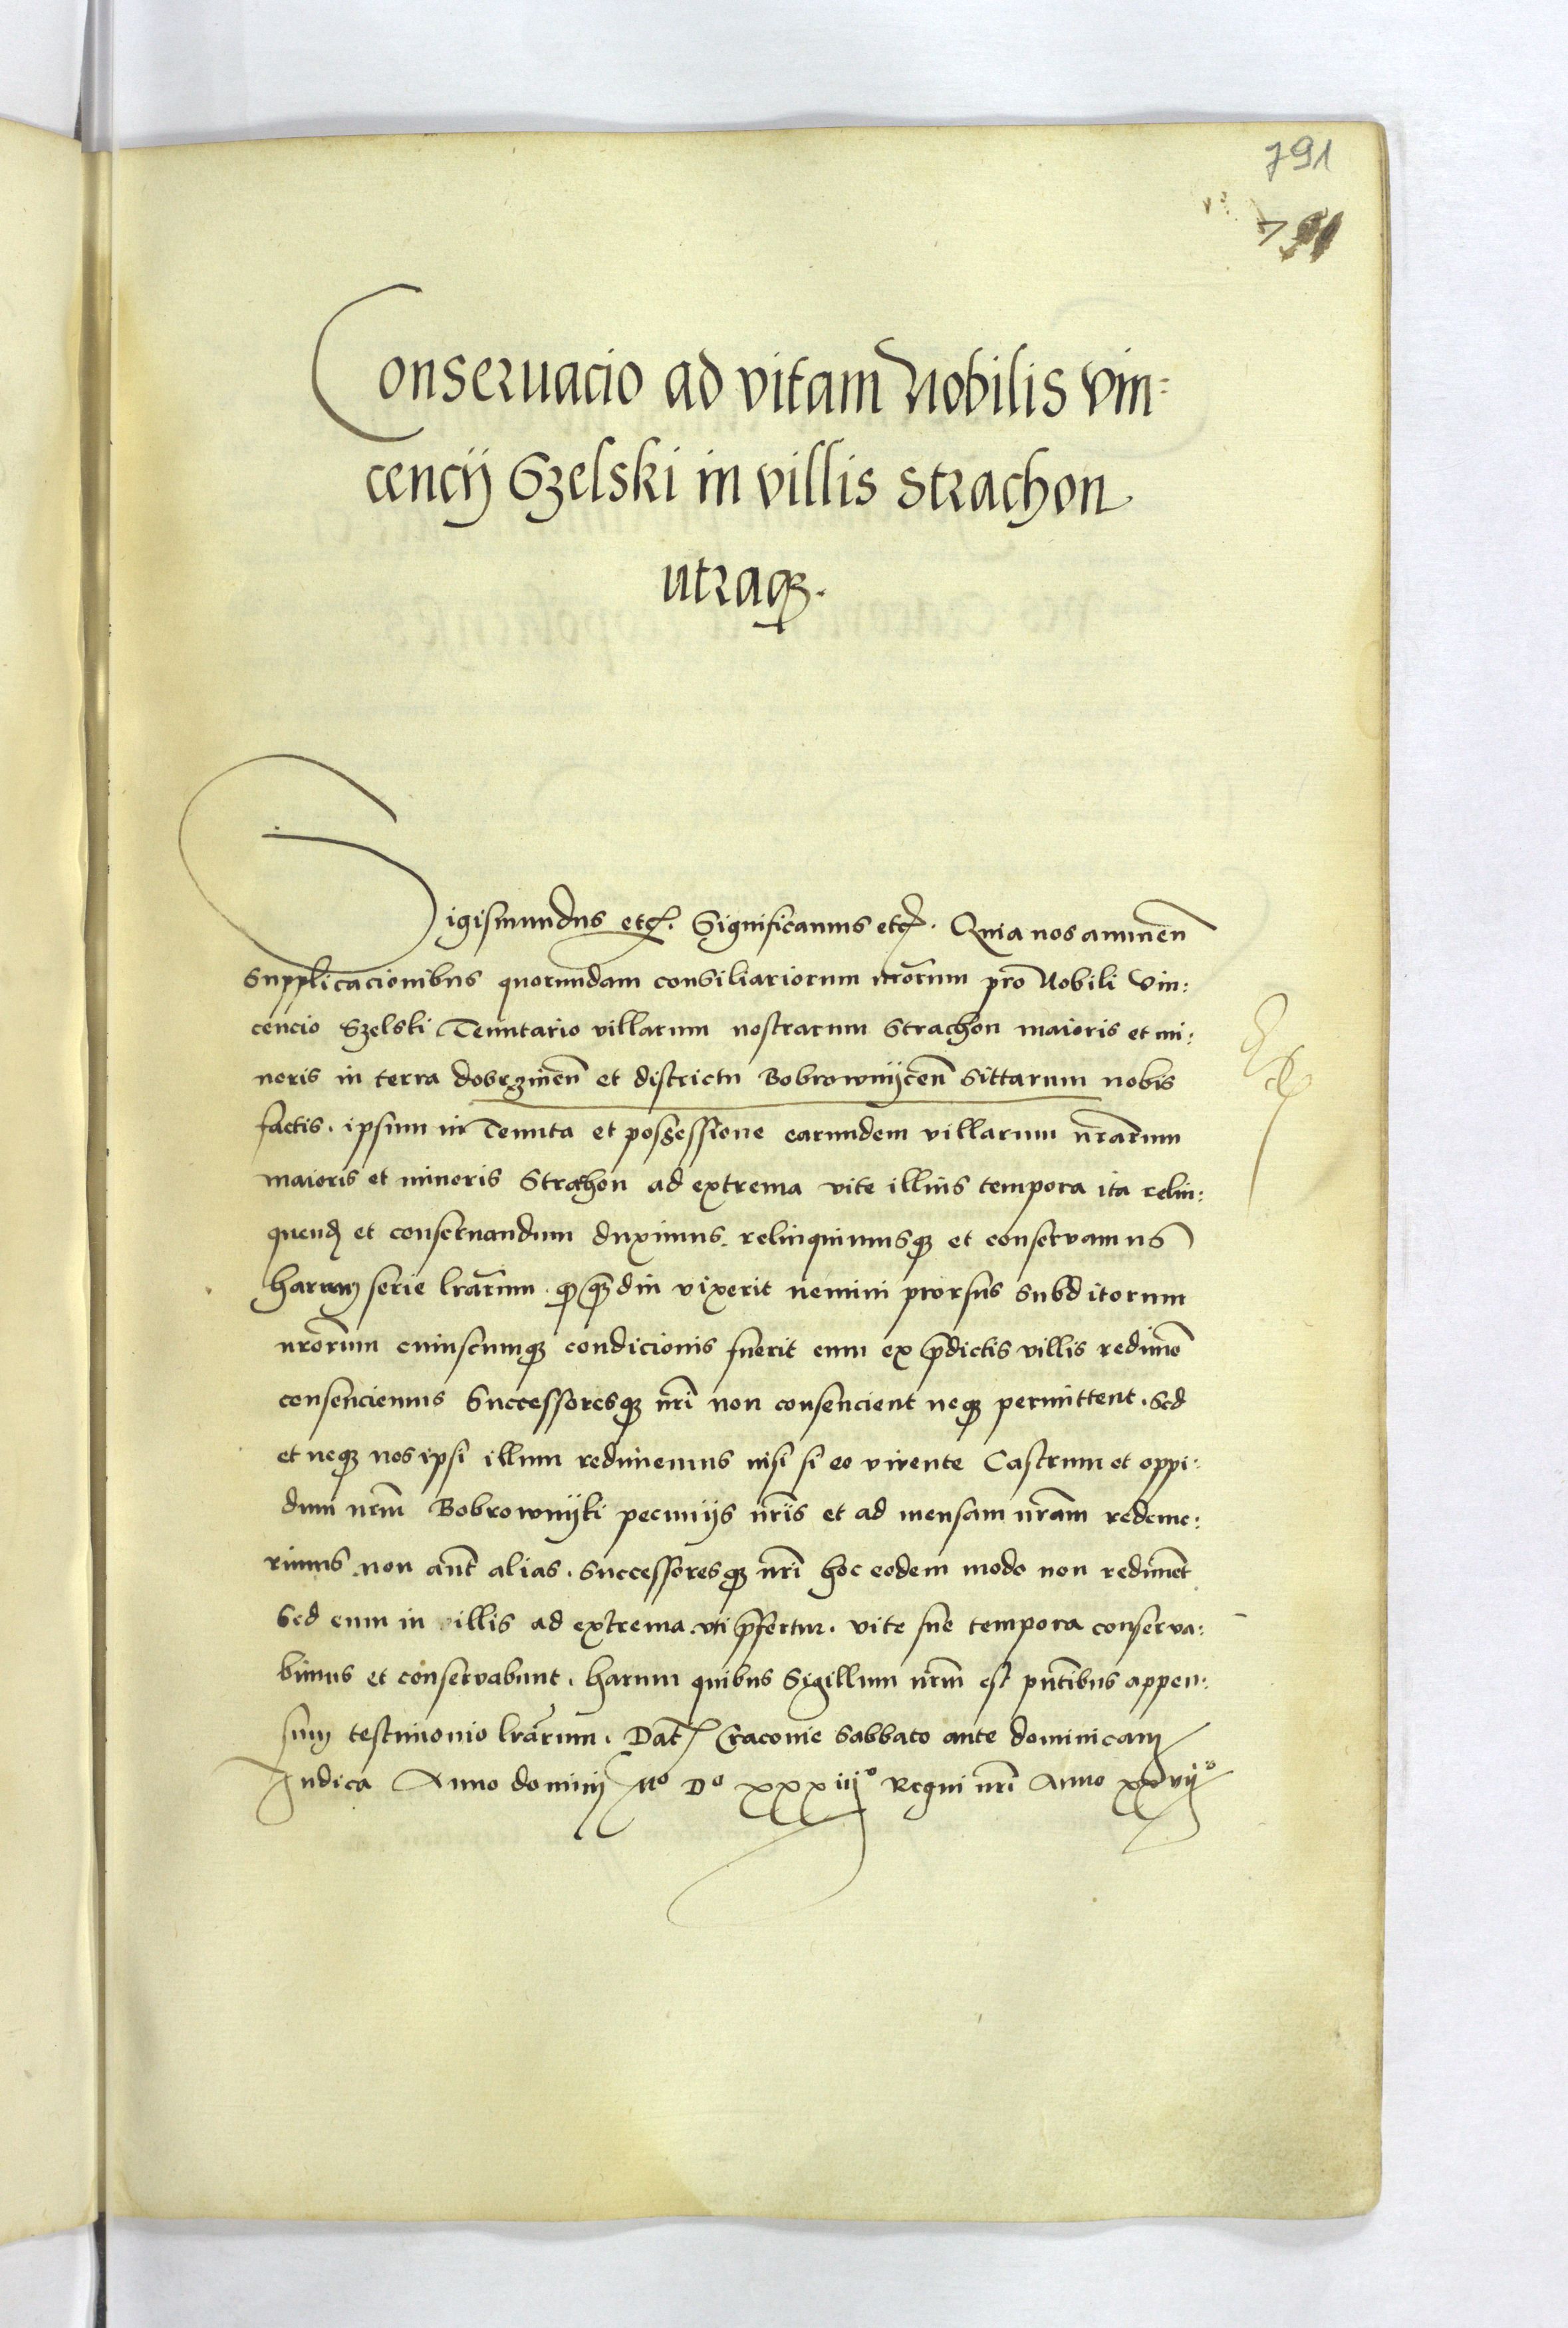 791
791
Conseruacio ad vitam Nobilis Vin:
cencij Szelski in villis Strachon
utraqꝫ.
Sigismundus etc. Significamus etc. Quia nos annuen̄
Supplicacionibus quorundam consiliariorum nr̄orum pro Nobili Vin:
cencio Szelski Tenutario villarum nostrarum Strachon maioris et mi:
noris in terra dobrzinen̄ et districtu Bobrownijcen̄ Sittarum nobis
factis. ipsum in Tenuta et possessione earundem villarum nr̄arum
maioris et minoris Strachon ad extrema vite illius tempora ita relin:
quend et conseruandum duximus. relinquimusqꝫ et conservamus
harum serie lr̄arum. qꝫ qꝫdiu vixerit nemini prorsus subditorum
nr̄orum cuiuscumqꝫ condicionis fuerit eum ex p̄dictis villis redimē
consenciemus Successoresqꝫ nr̄i non consencient neqꝫ permittent. Sed
et neqꝫ nos ipsi illum redimemus nisi si eo vivente Castrum et oppi:
dum nr̄m Bobrownijki pecunijs nr̄is et ad mensam nr̄am redeme:
rimus non aut̄ alias. Successoresqꝫ nr̄i hoc eodem modo non rediment
Sed eum in villis ad extrema uti p̄fertur. vite sue tempora conserva:
bimus et conservabunt. harum quibus Sigillum nr̄m est pn̄tibus appen:
sum testimonio lr̄arum. Dat Cracovie Sabbato ante dominicam
Iudica Anno domini Mo Do xxxiijo Regni nr̄i Anno xxvijo